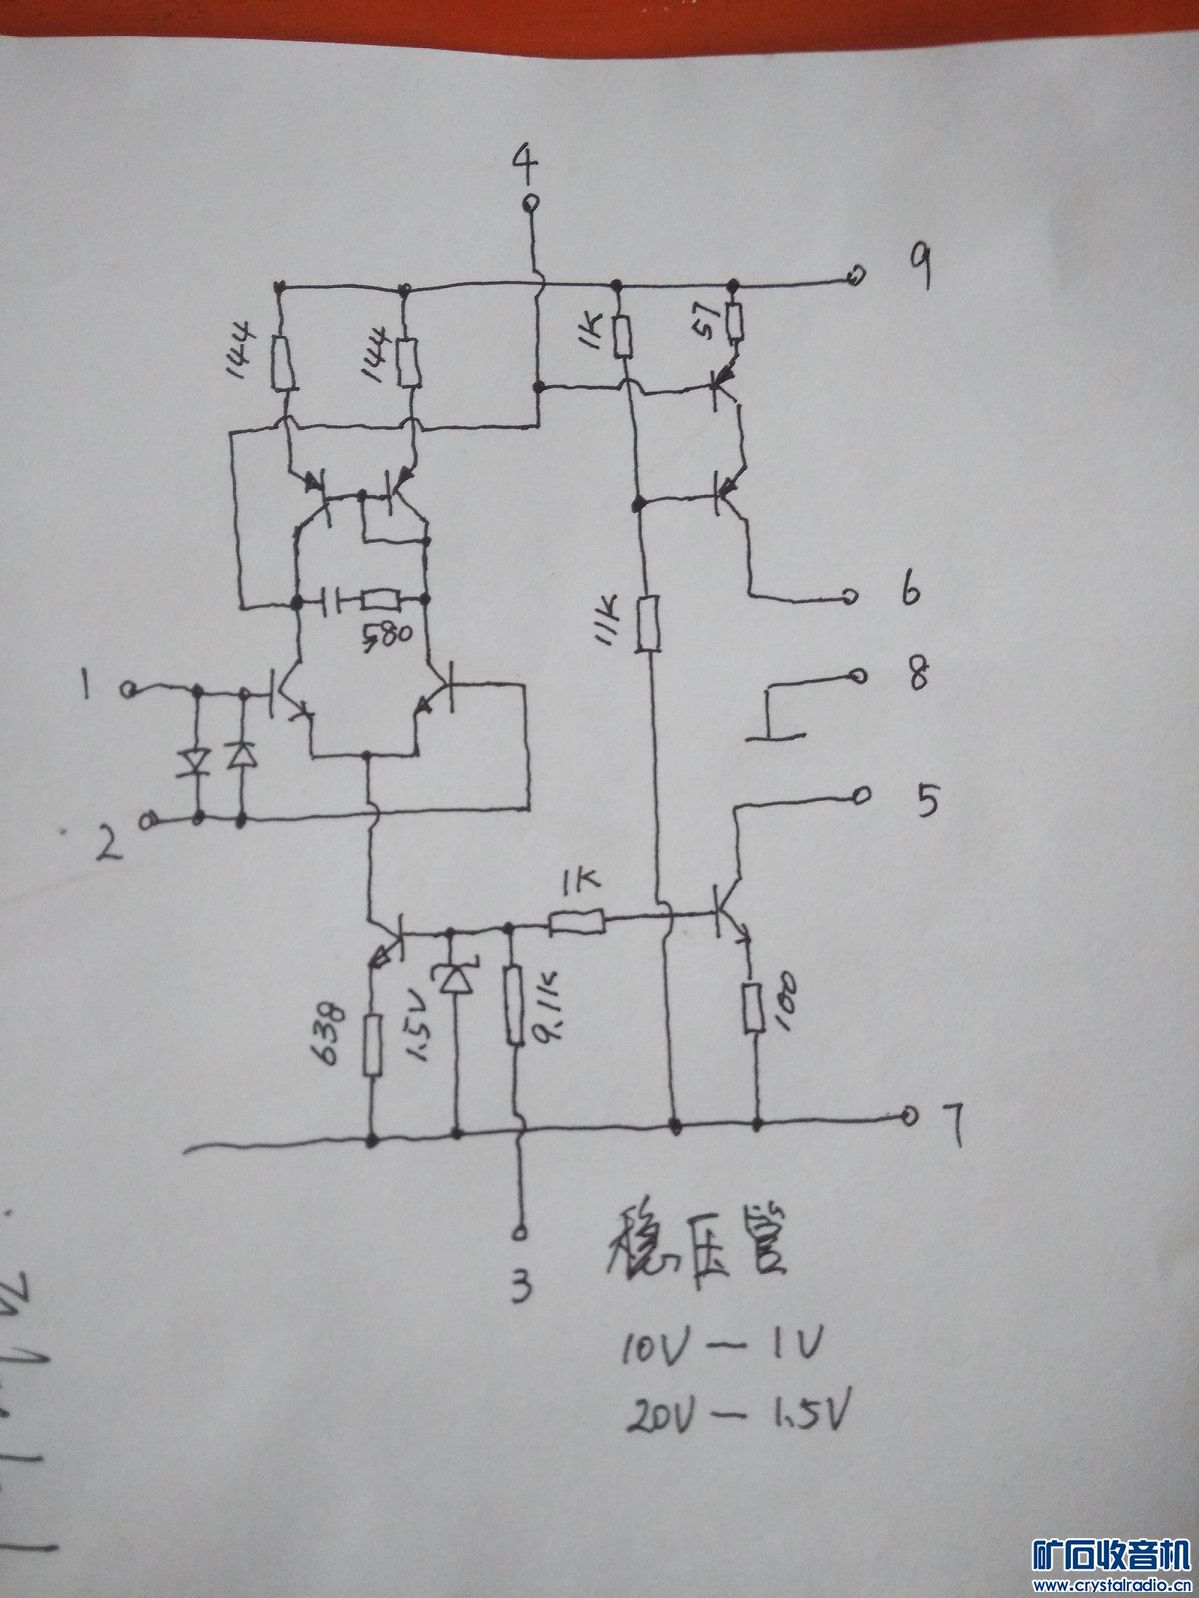 4
9
144
144
1K
57
580
11K
6
1
8
2
5
1K
638
1.5V
9.1K
100
7
3
稳压管
10V — 1V
20V — 1.5V
矿石收音机
www.crystalradio.cn